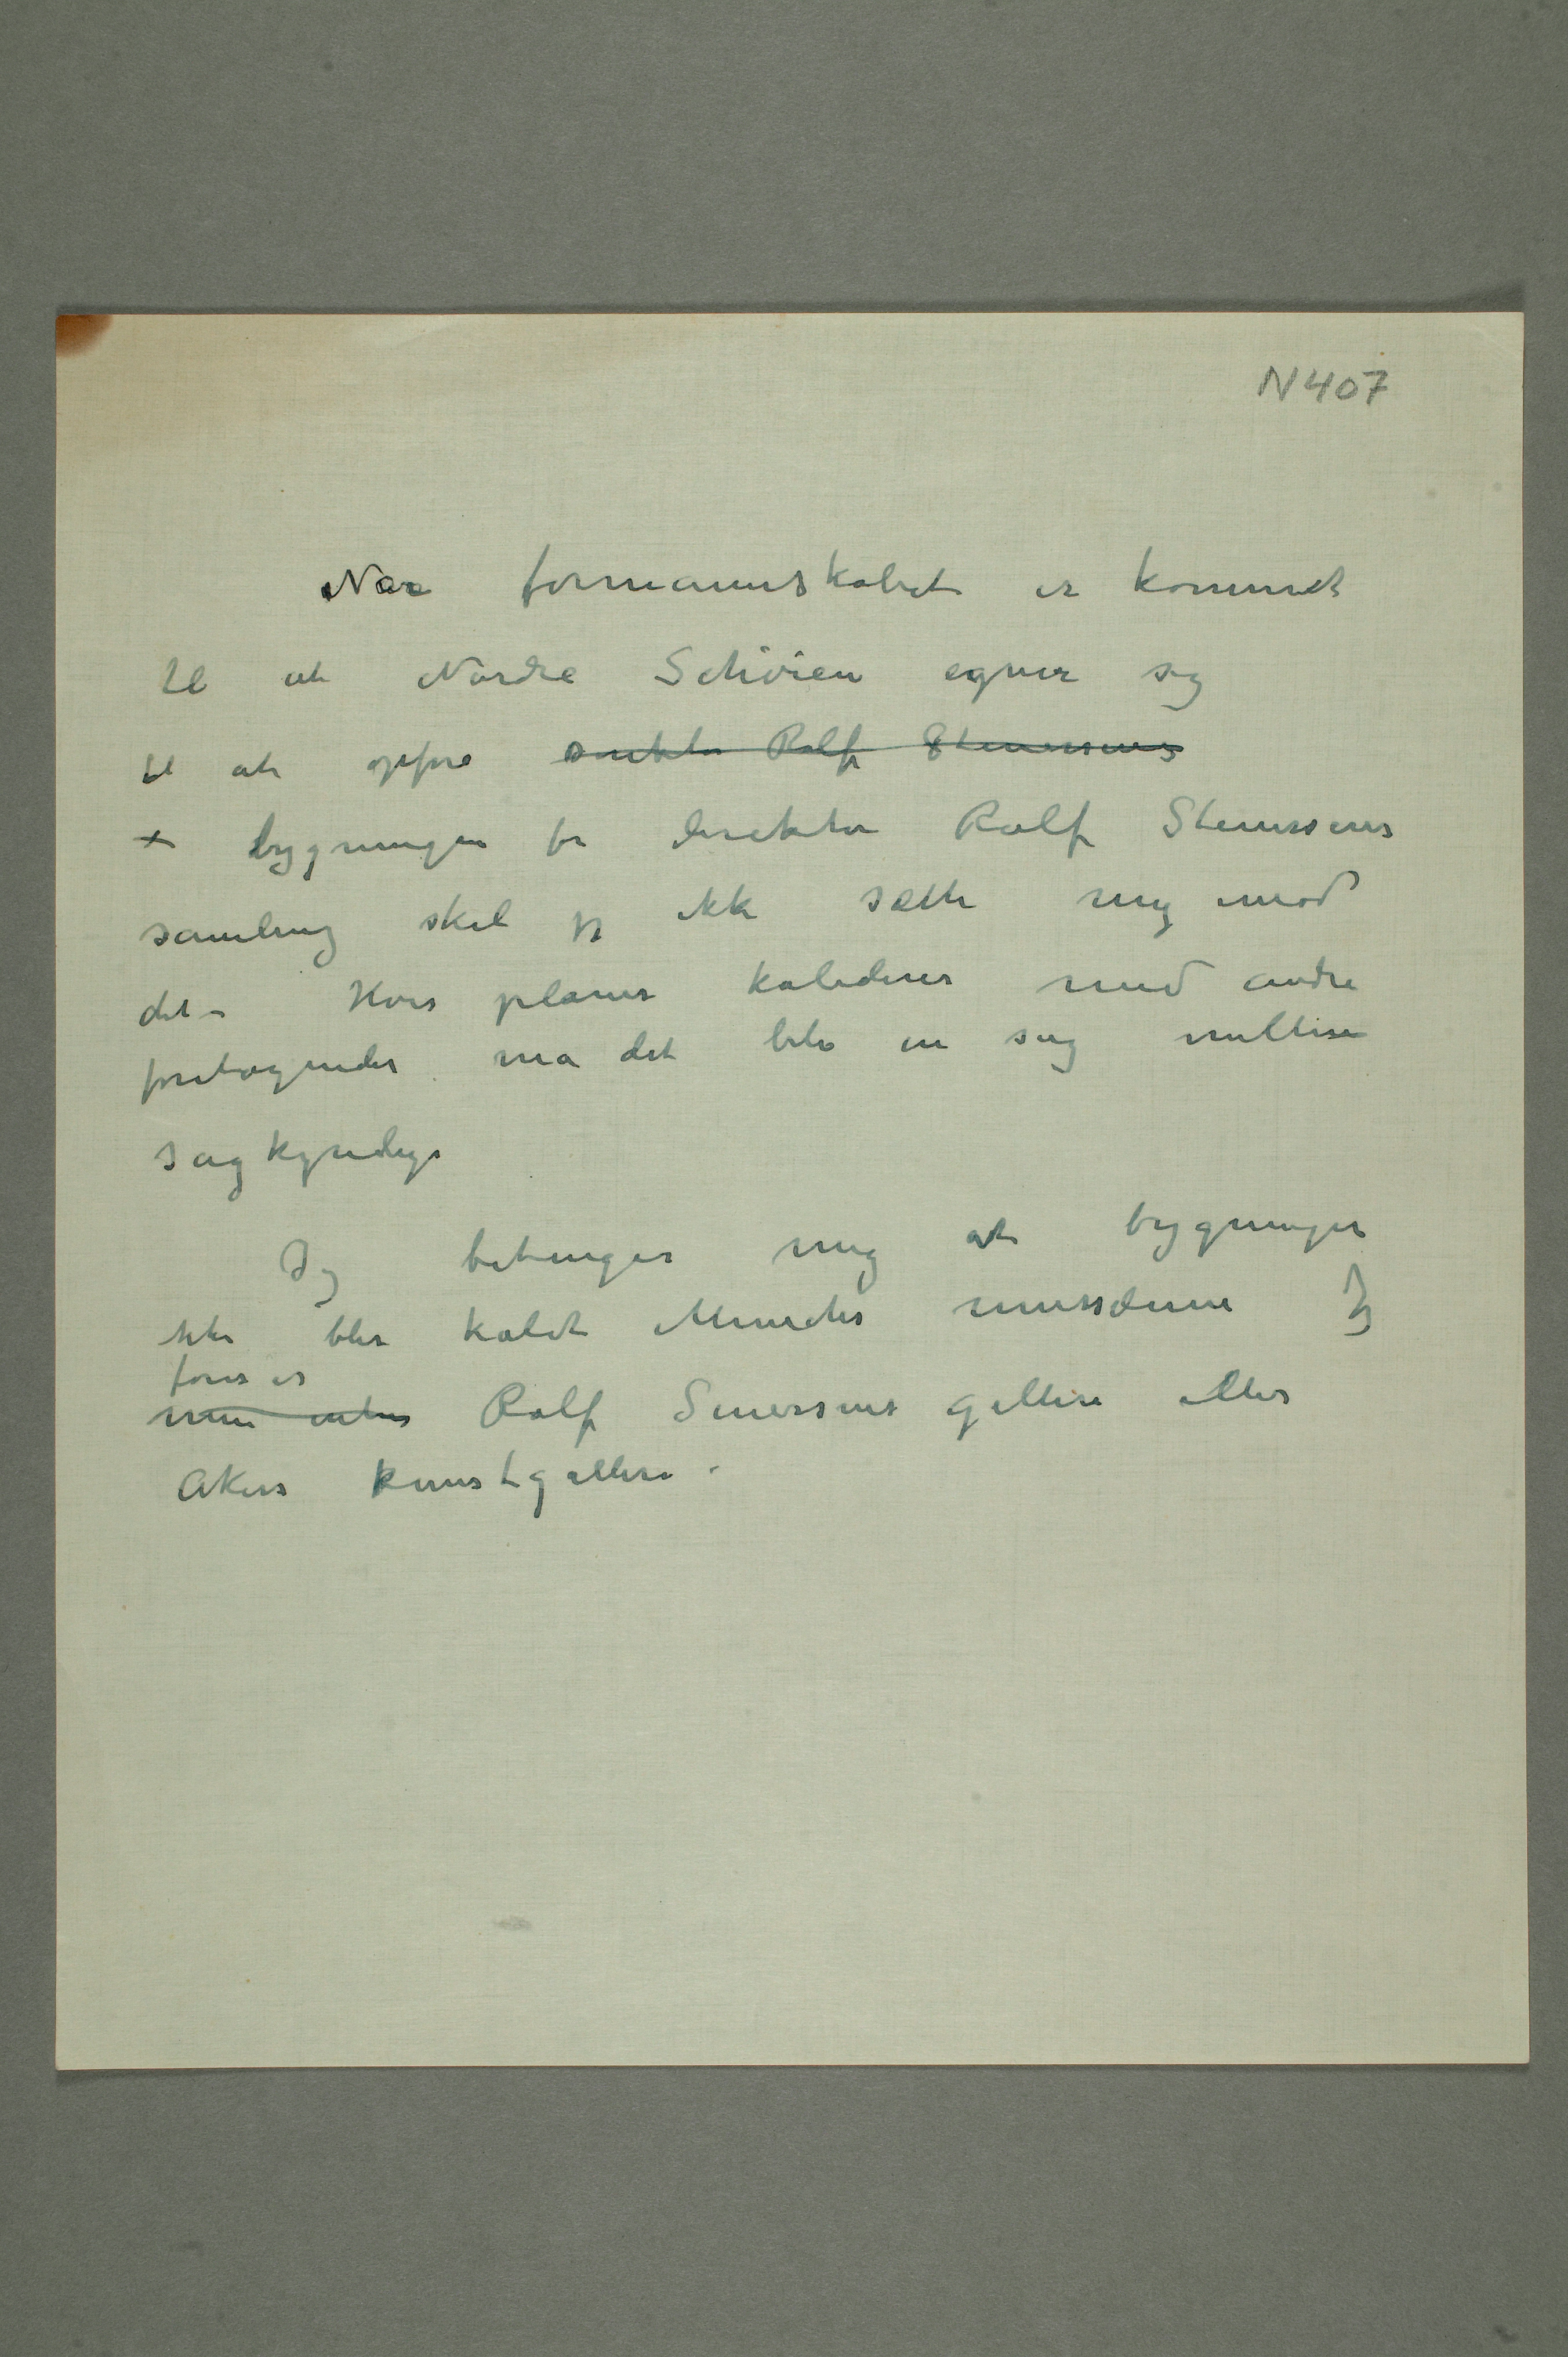 N 407
Når formannskabet er kommet
til at Nordre Schöien egner sig
til at opføre direktør Rolf Stenersens
bygningen for direktør Rolf Stenersens
samling skal jeg ikke sætte mig imod
det – Hvis planer koliderer med andre
foretagender må det blive en sag mellem
sagkyndige
Jeg betinger mig at bygningen
ikke blir kaldt Munchs mussæum Jeg
fores er
Rolf Senersens galleri eller
Akers kunstgalleri –